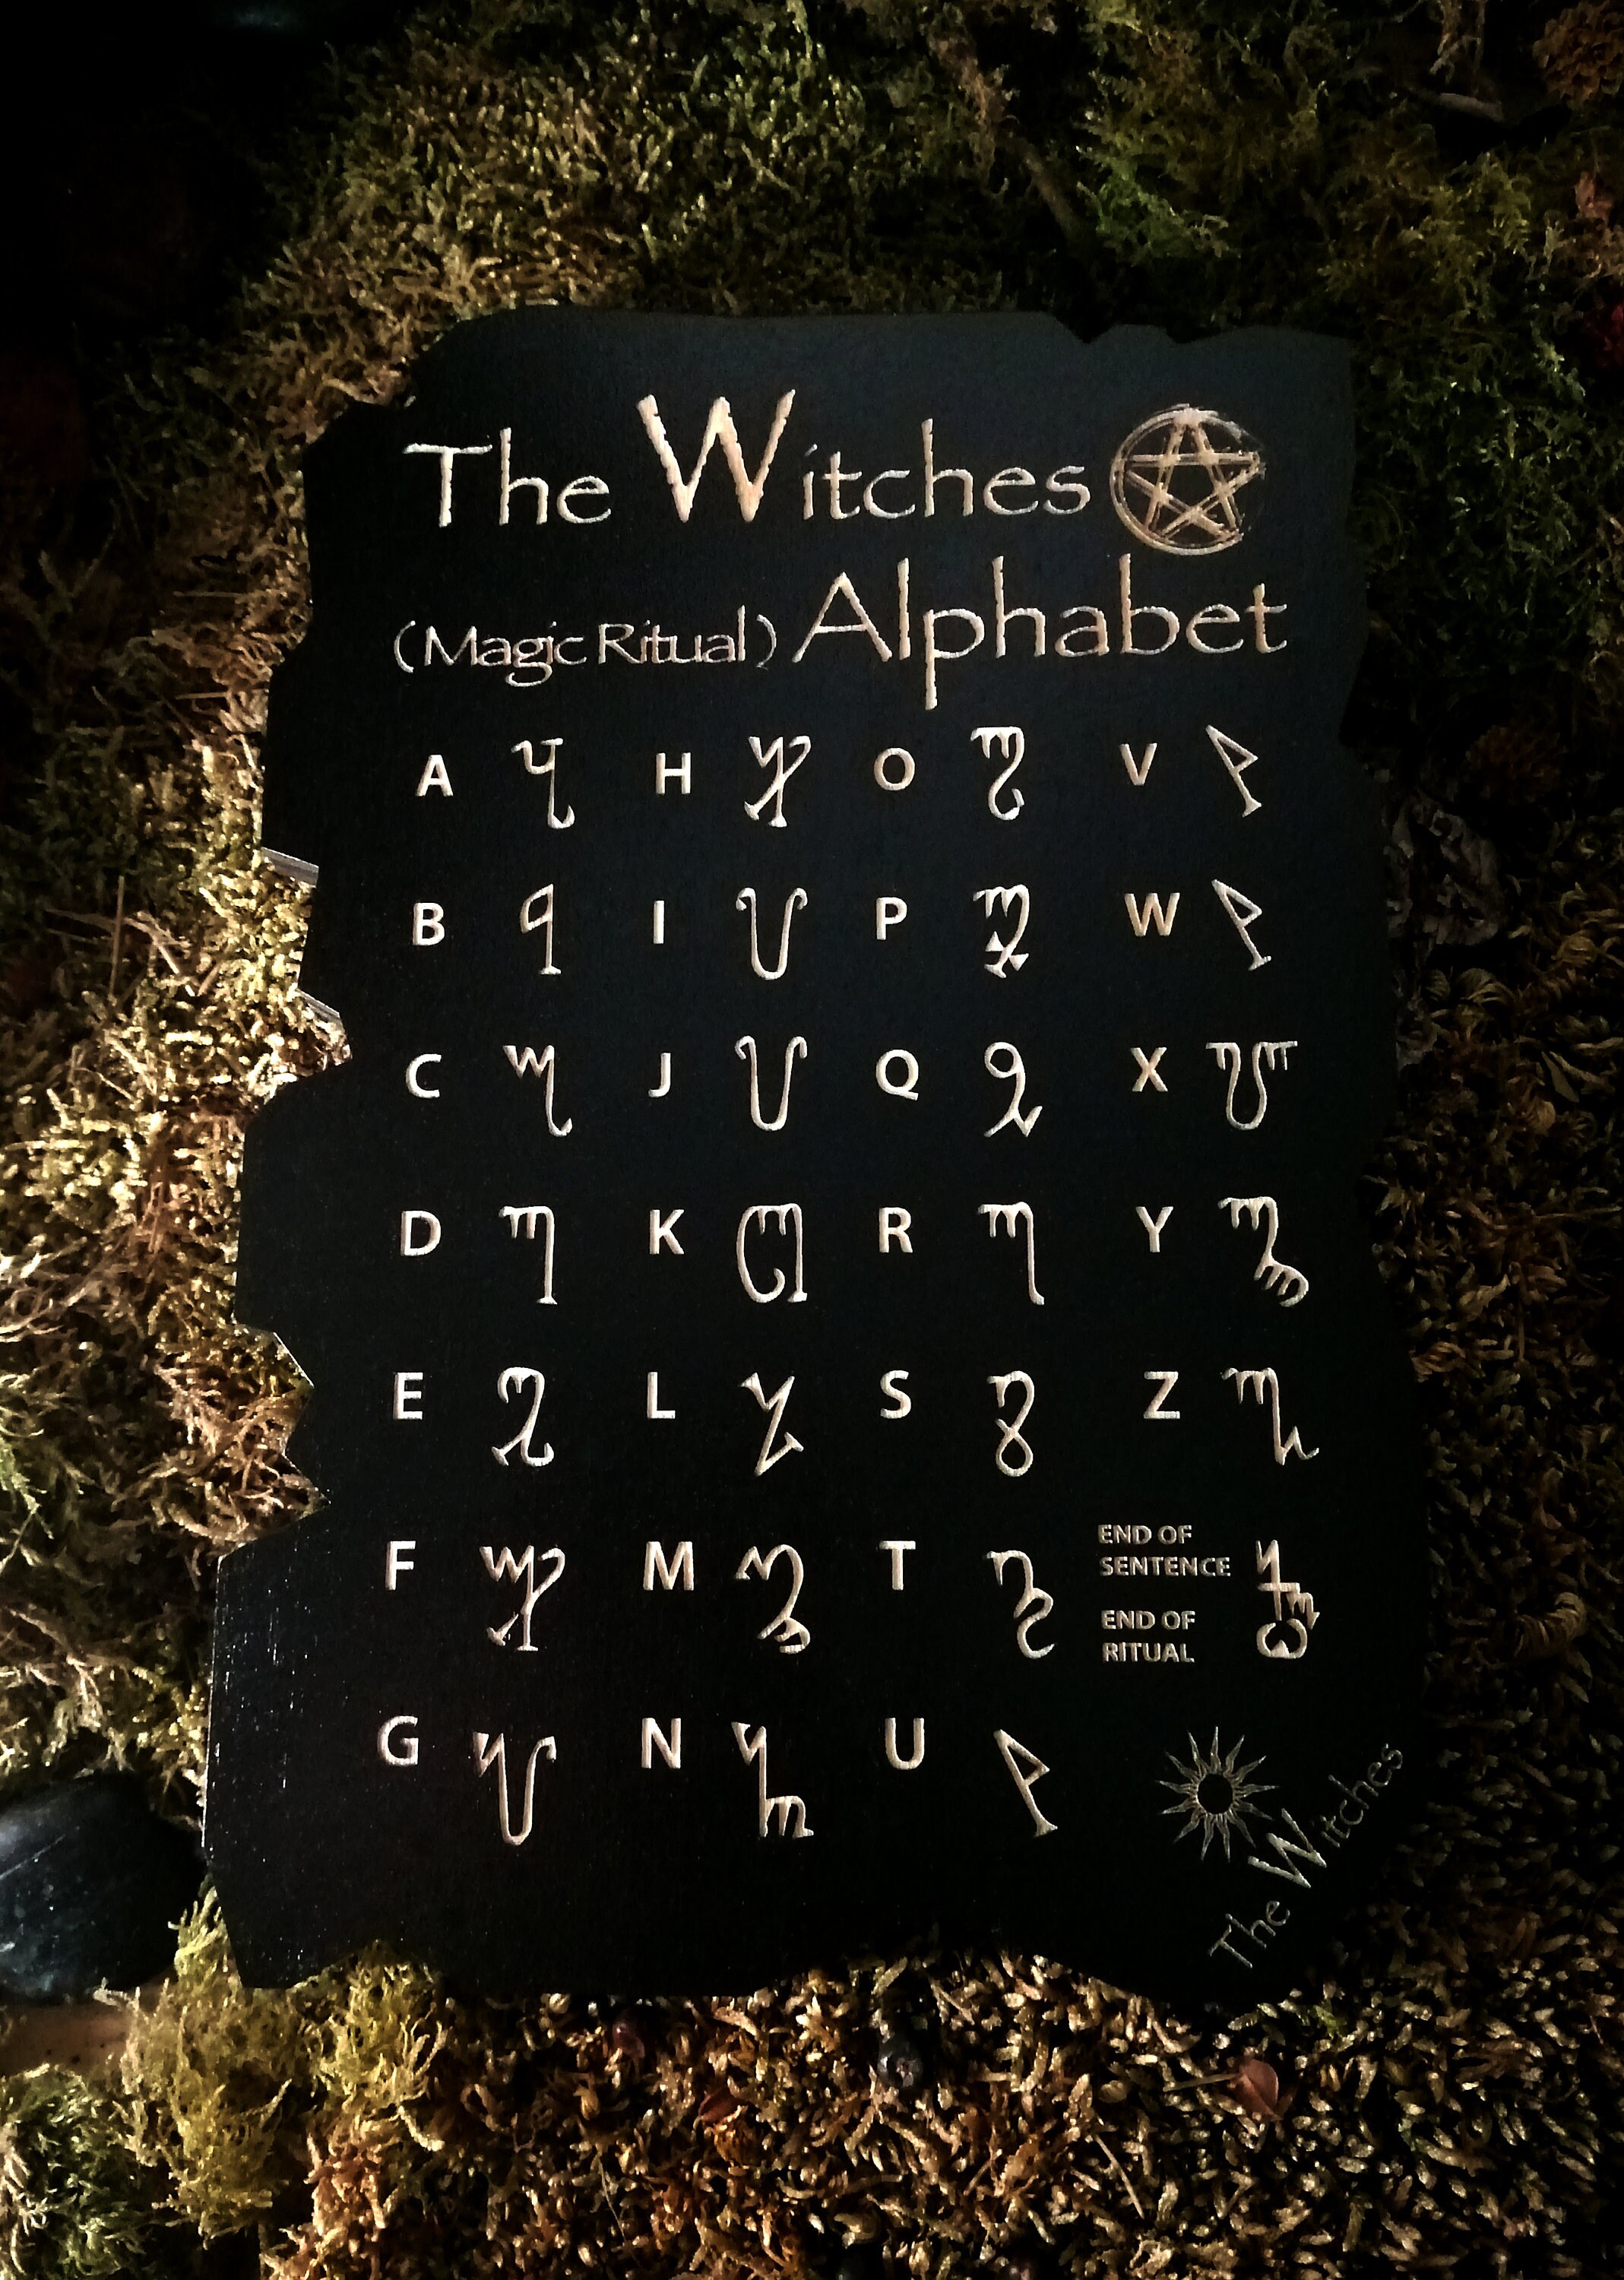 The Witches
(Magic Ritual) Alphabet
A H O V
B I P W
C J Q X
D K R Y
E L S Z
F M T END OF
SENTENCE
END OF
RITUAL
G N U
The Witches